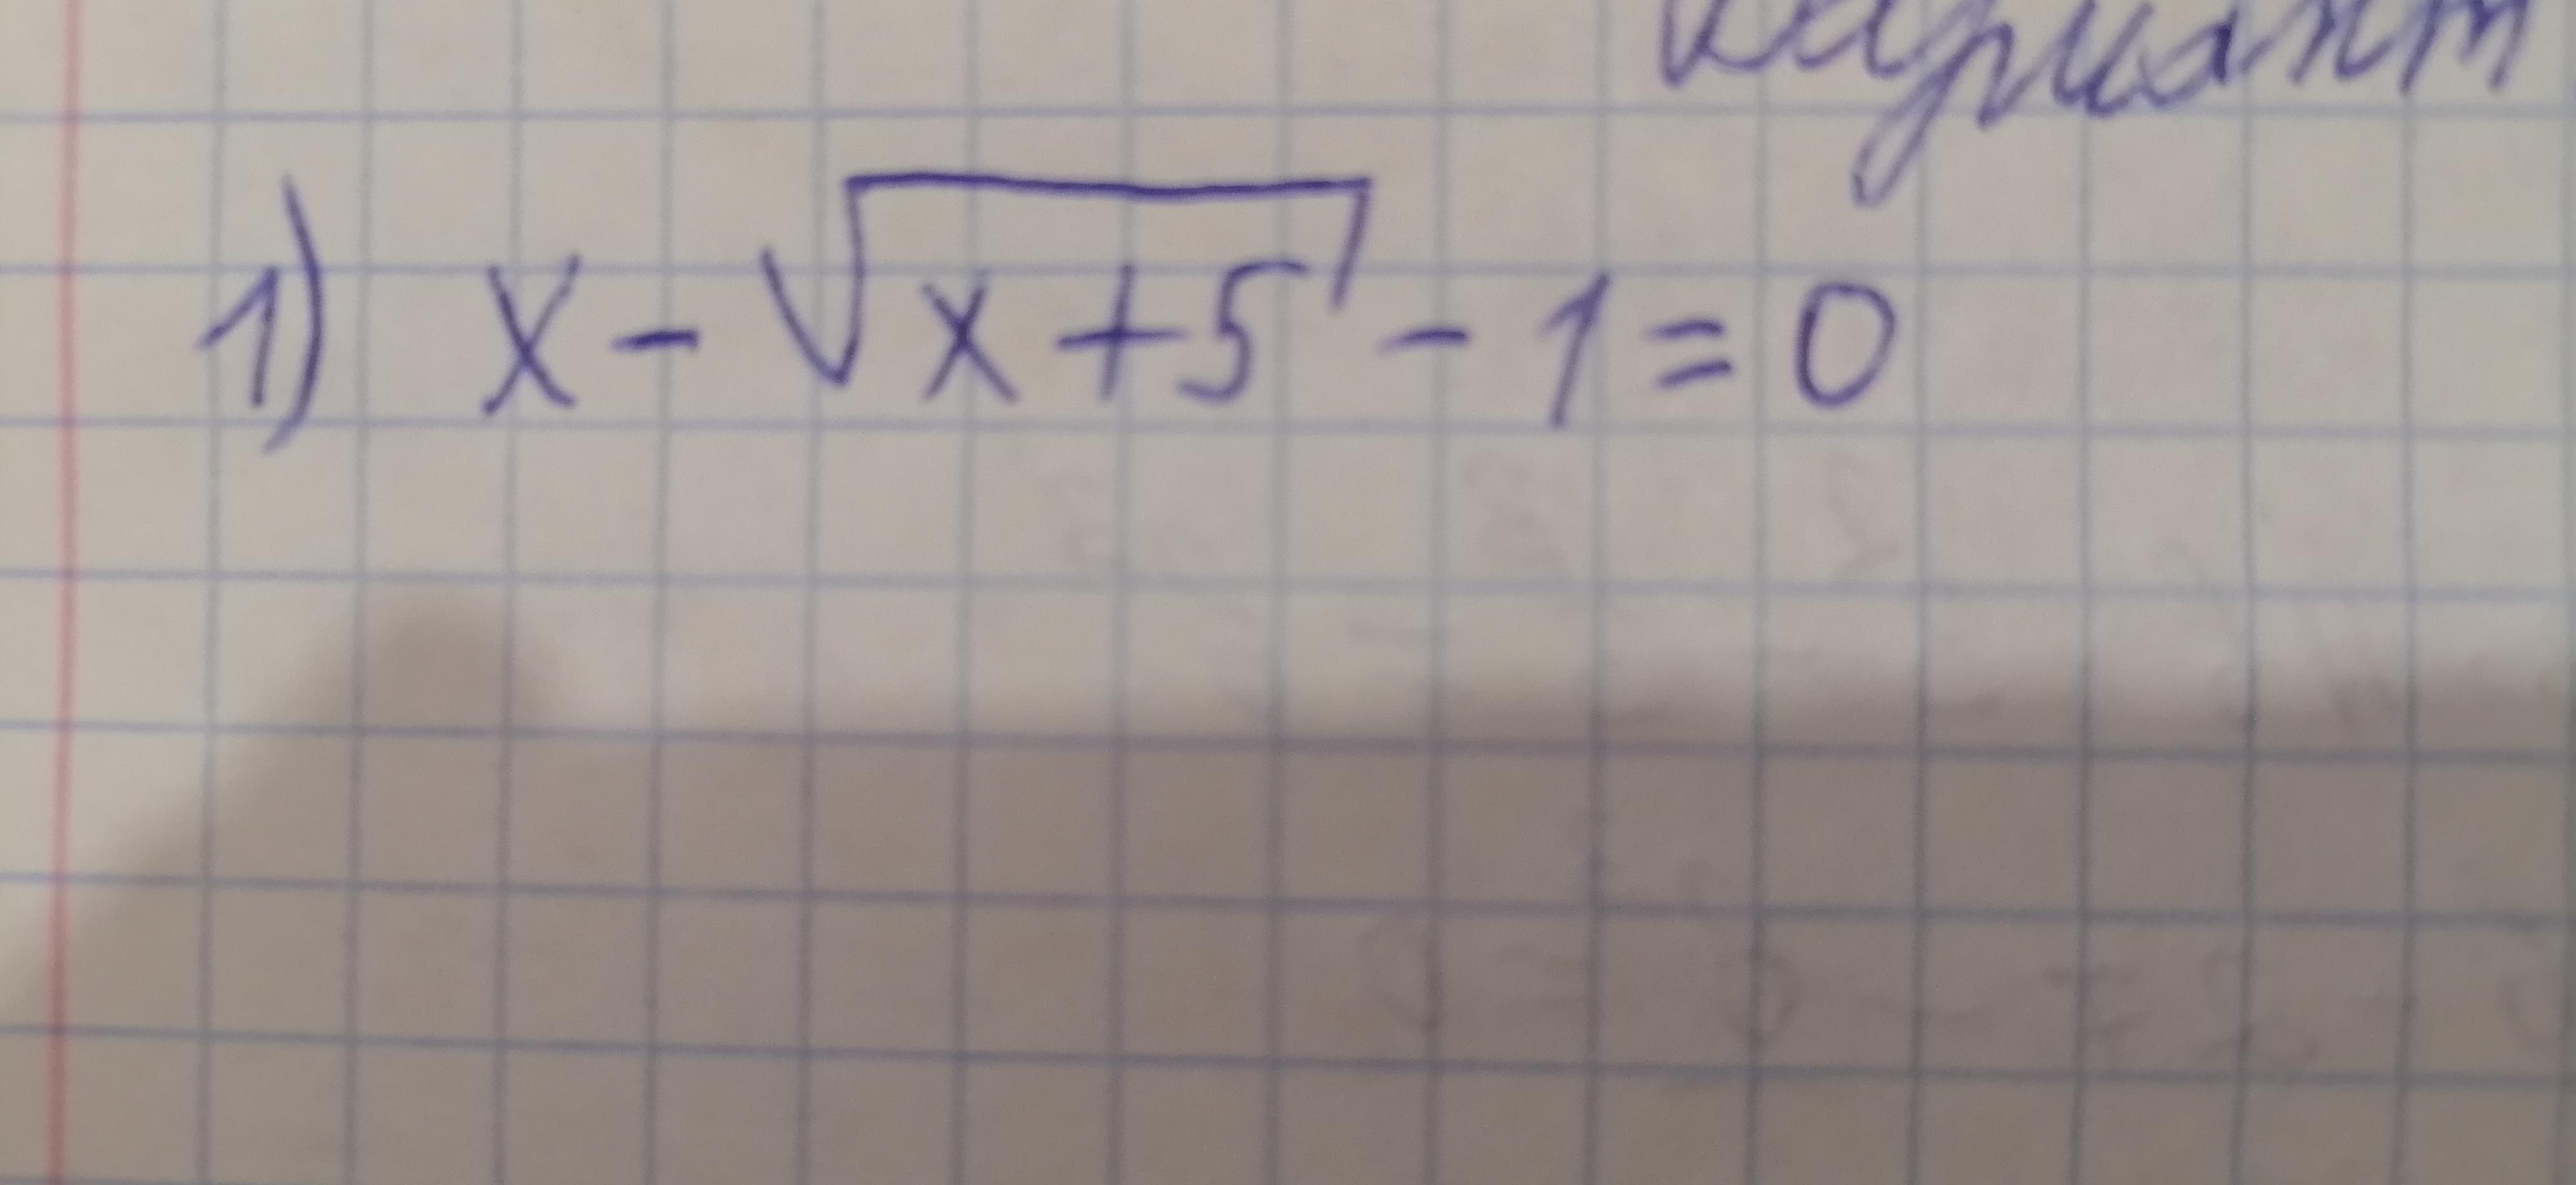 вариант
1) x - √(x+5) - 1 = 0